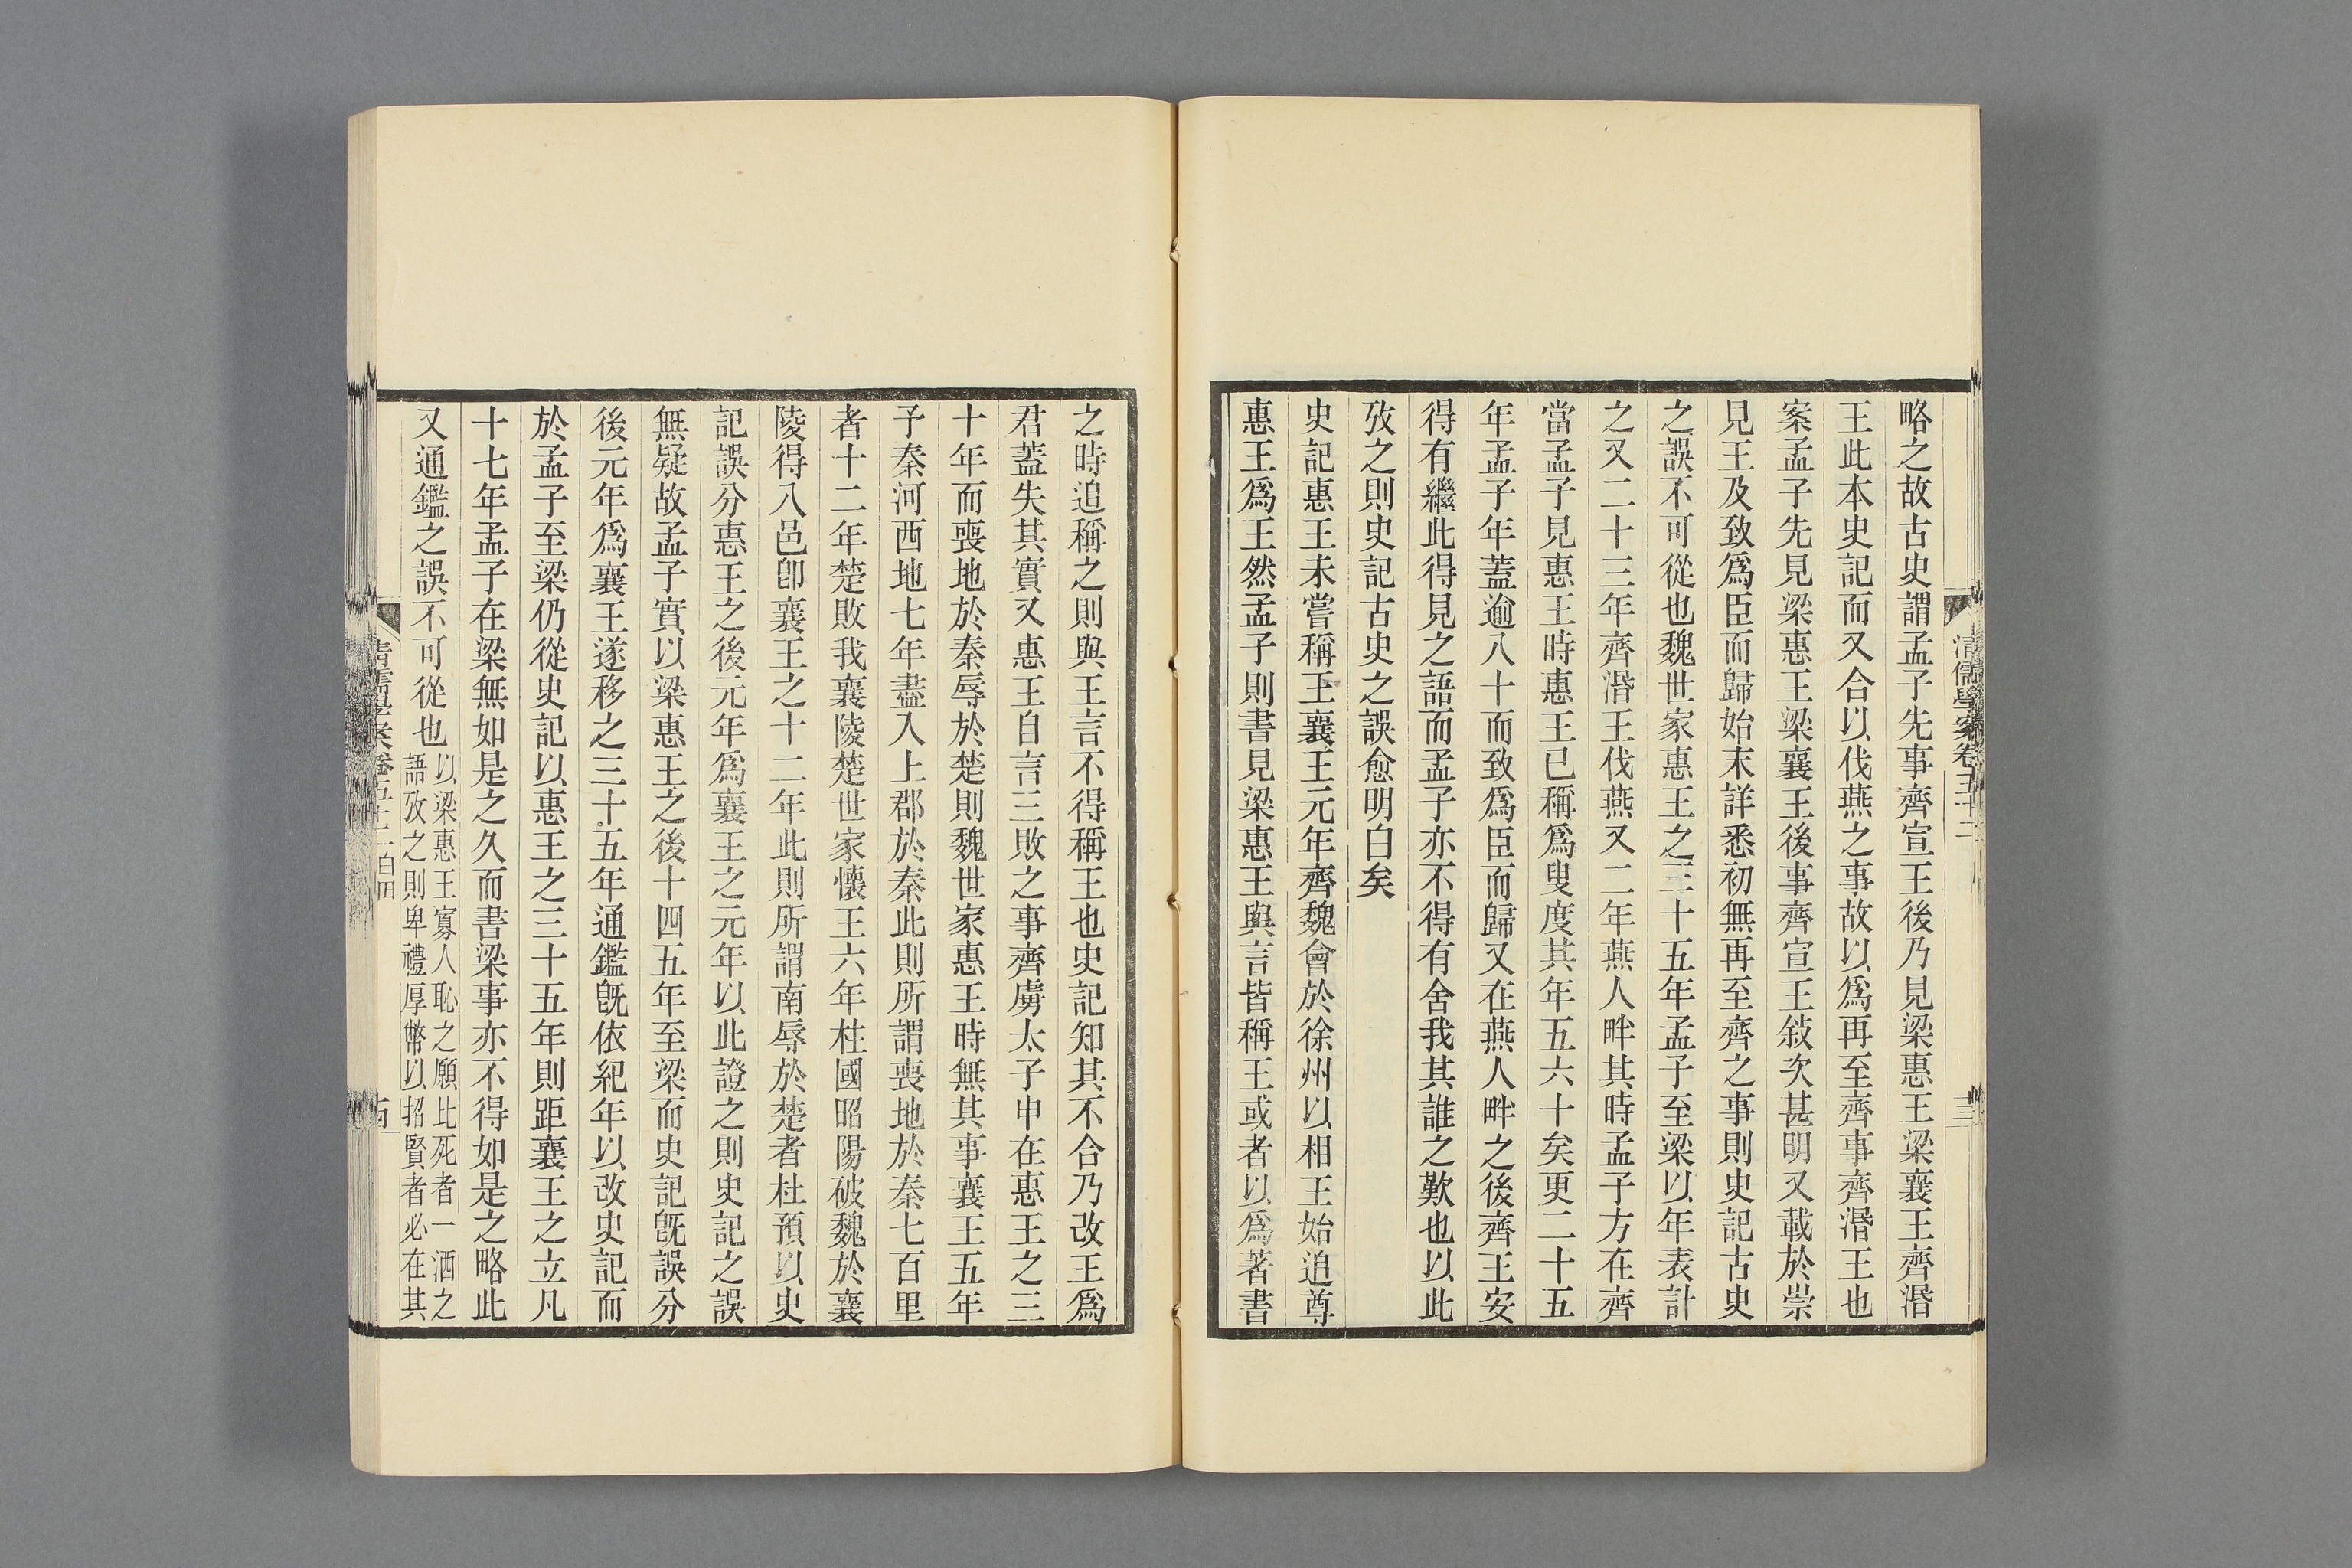 略之故古史謂孟子先事齊宣王後乃見梁惠王梁襄王齊湣
王此本史記而又合以伐燕之事故以爲再至齊事齊湣王也
案孟子先見梁惠王梁襄王後事齊宣王敍次甚明又載於崇
見王及致爲臣而歸始末詳悉初無再至齊之事則史記古史
之誤不可從也魏世家惠王之三十五年孟子至梁以年表計
之又二十三年齊湣王伐燕又二年燕人畔其時孟子方在齊
當孟子見惠王時惠王已稱爲叟度其年五六十矣更二十五
年孟子年蓋逾八十而致爲臣而歸又在燕人畔之後齊王安
得有繼此得見之語而孟子亦不得有舍我其誰之歎也以此
攷之則史記古史之誤愈明白矣
史記惠王未嘗稱王襄王元年齊魏會於徐州以相王始追尊
惠王爲王然孟子則書見梁惠王與言皆稱王或者以爲著書
之時追稱之則與王言不得稱王也史記知其不合乃改王爲
君蓋失其實又惠王自言三敗之事齊虜太子申在惠王之三
十年而喪地於秦辱於楚則魏世家惠王時無其事襄王五年
予秦河西地七年盡入上郡於秦此則所謂喪地於秦七百里
者十二年楚敗我襄陵楚世家懷王六年柱國昭陽破魏於襄
陵得八邑卽襄王之十二年此則所謂南辱於楚者杜預以史
記誤分惠王之後元年爲襄王之元年以此證之則史記之誤
無疑故孟子實以梁惠王之後十四五年至梁而史記旣誤分
後元年爲襄王遂移之三十五年通鑑旣依紀年以改史記而
於孟子至梁仍從史記以惠王之三十五年則距襄王之立凡
十七年孟子在梁無如是之久而書梁事亦不得如是之略此
又通鑑之誤不可從也以梁惠王寡人恥之願比死者一洒之
語攷之則卑禮厚幣以招賢者必在其
清儒學案卷五十二
白田